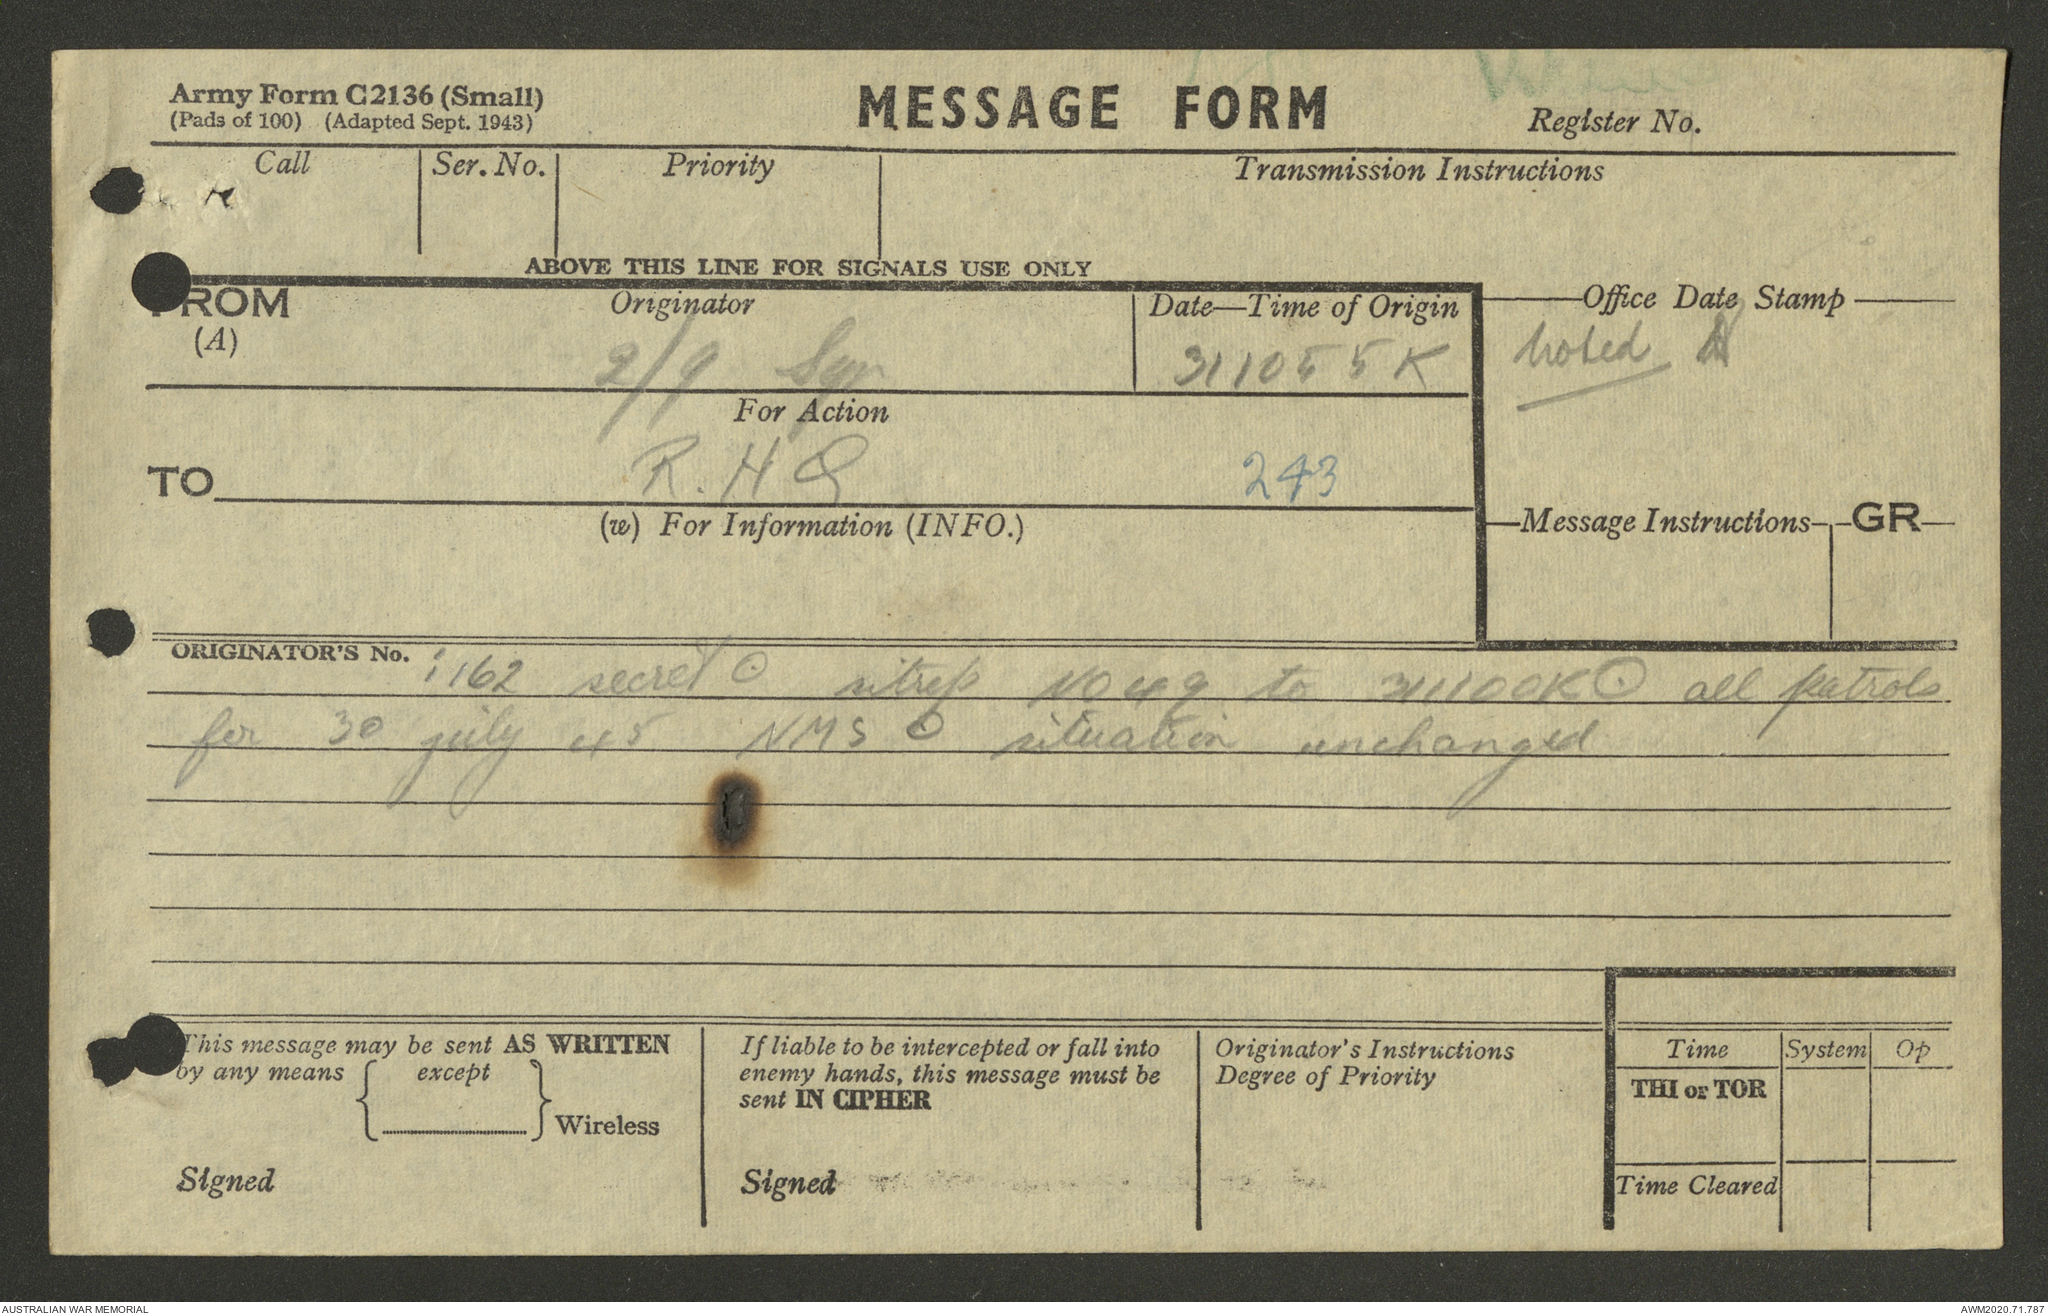 Army Form C2136 (Small)
(Pads of 100) (Adapted Sept. 1943)
MESSAGE FORM
Register No.
Call
Ser. No.
Priority
Transmission Instructions
ABOVE THIS LINE FOR SIGNALS USE ONLY
FROM
(A)
Originator
2/9 Sqn
Date—Time of Origin
311055K
Office Date Stamp
Noted
For Action
TO
R.HQ
243
(w) For Information (INFO.)
Message Instructions
GR
ORIGINATOR'S No. i162 secret ⊙ sitrep NO 49 to 311100K ⊙ all patrols
for 30 july 45 NMS ⊙ situation unchanged
This message may be sent AS WRITTEN
by any means except
Wireless
Signed
If liable to be intercepted or fall into
enemy hands, this message must be
sent IN CIPHER
Signed
Originator's Instructions
Degree of Priority
Time
System
Op
THI or TOR
Time Cleared
AUSTRALIAN WAR MEMORIAL
AWM2020.71.787